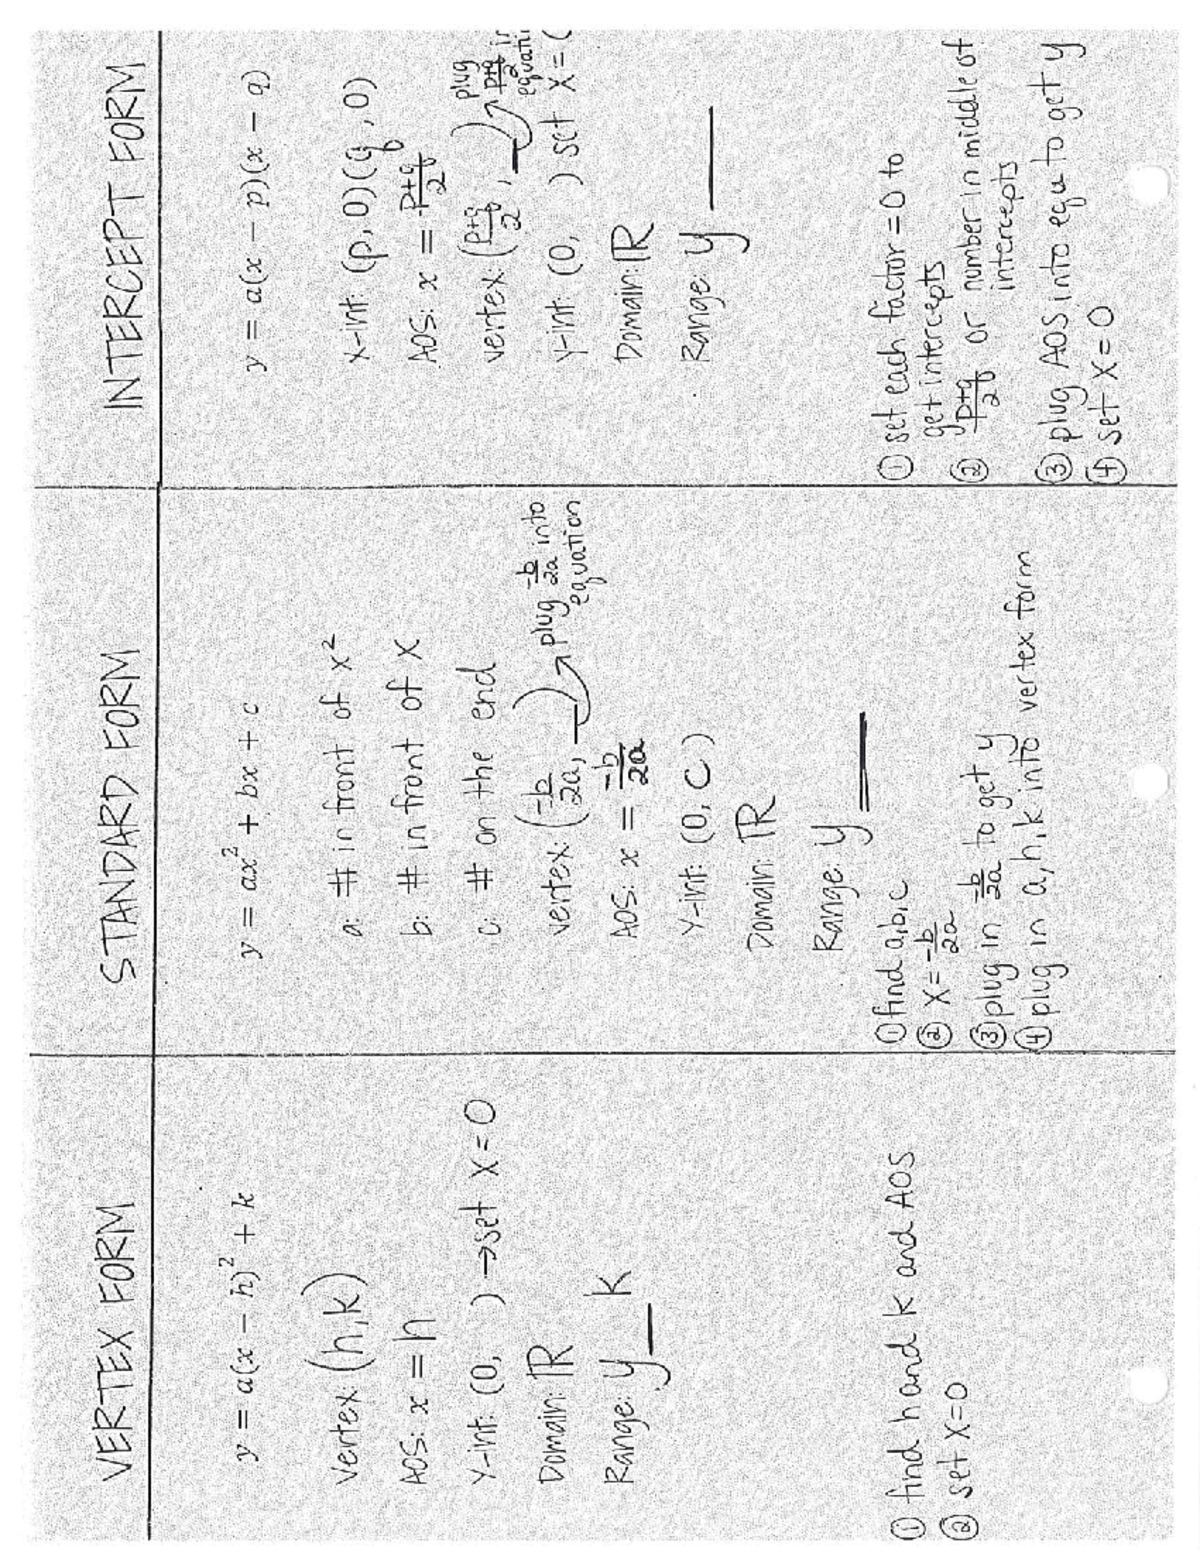 VERTEX FORM
y = a(x − h)² + k
Vertex: (h, k)
AOS: x = h
y-int: (0, ) → set x = 0
Domain: ℝ
Range: y __ k
① find h and k and AOS
② set x=0
STANDARD FORM
y = ax² + bx + c
a: # in front of x²
b: # in front of x
c: # on the end
vertex: (-b/2a, __) plug -b/2a into equation
AOS: x = -b/2a
y-int: (0, c)
Domain: ℝ
Range: y __
① find a,b,c
② x = -b/2a
③ plug in -b/2a to get y
④ plug in a, h, k into vertex form
INTERCEPT FORM
y = a(x − p)(x − q)
x-int: (p, 0) (q, 0)
AOS: x = p+q/2
vertex: (p+q/2, __) plug p+q/2 in
y-int: (0, ) set x =
Domain: ℝ
Range: y __
① set each factor = 0 to
get intercepts
② p+q/2 or number in middle of
intercepts
③ plug AOS into equ to get y
④ set x = 0